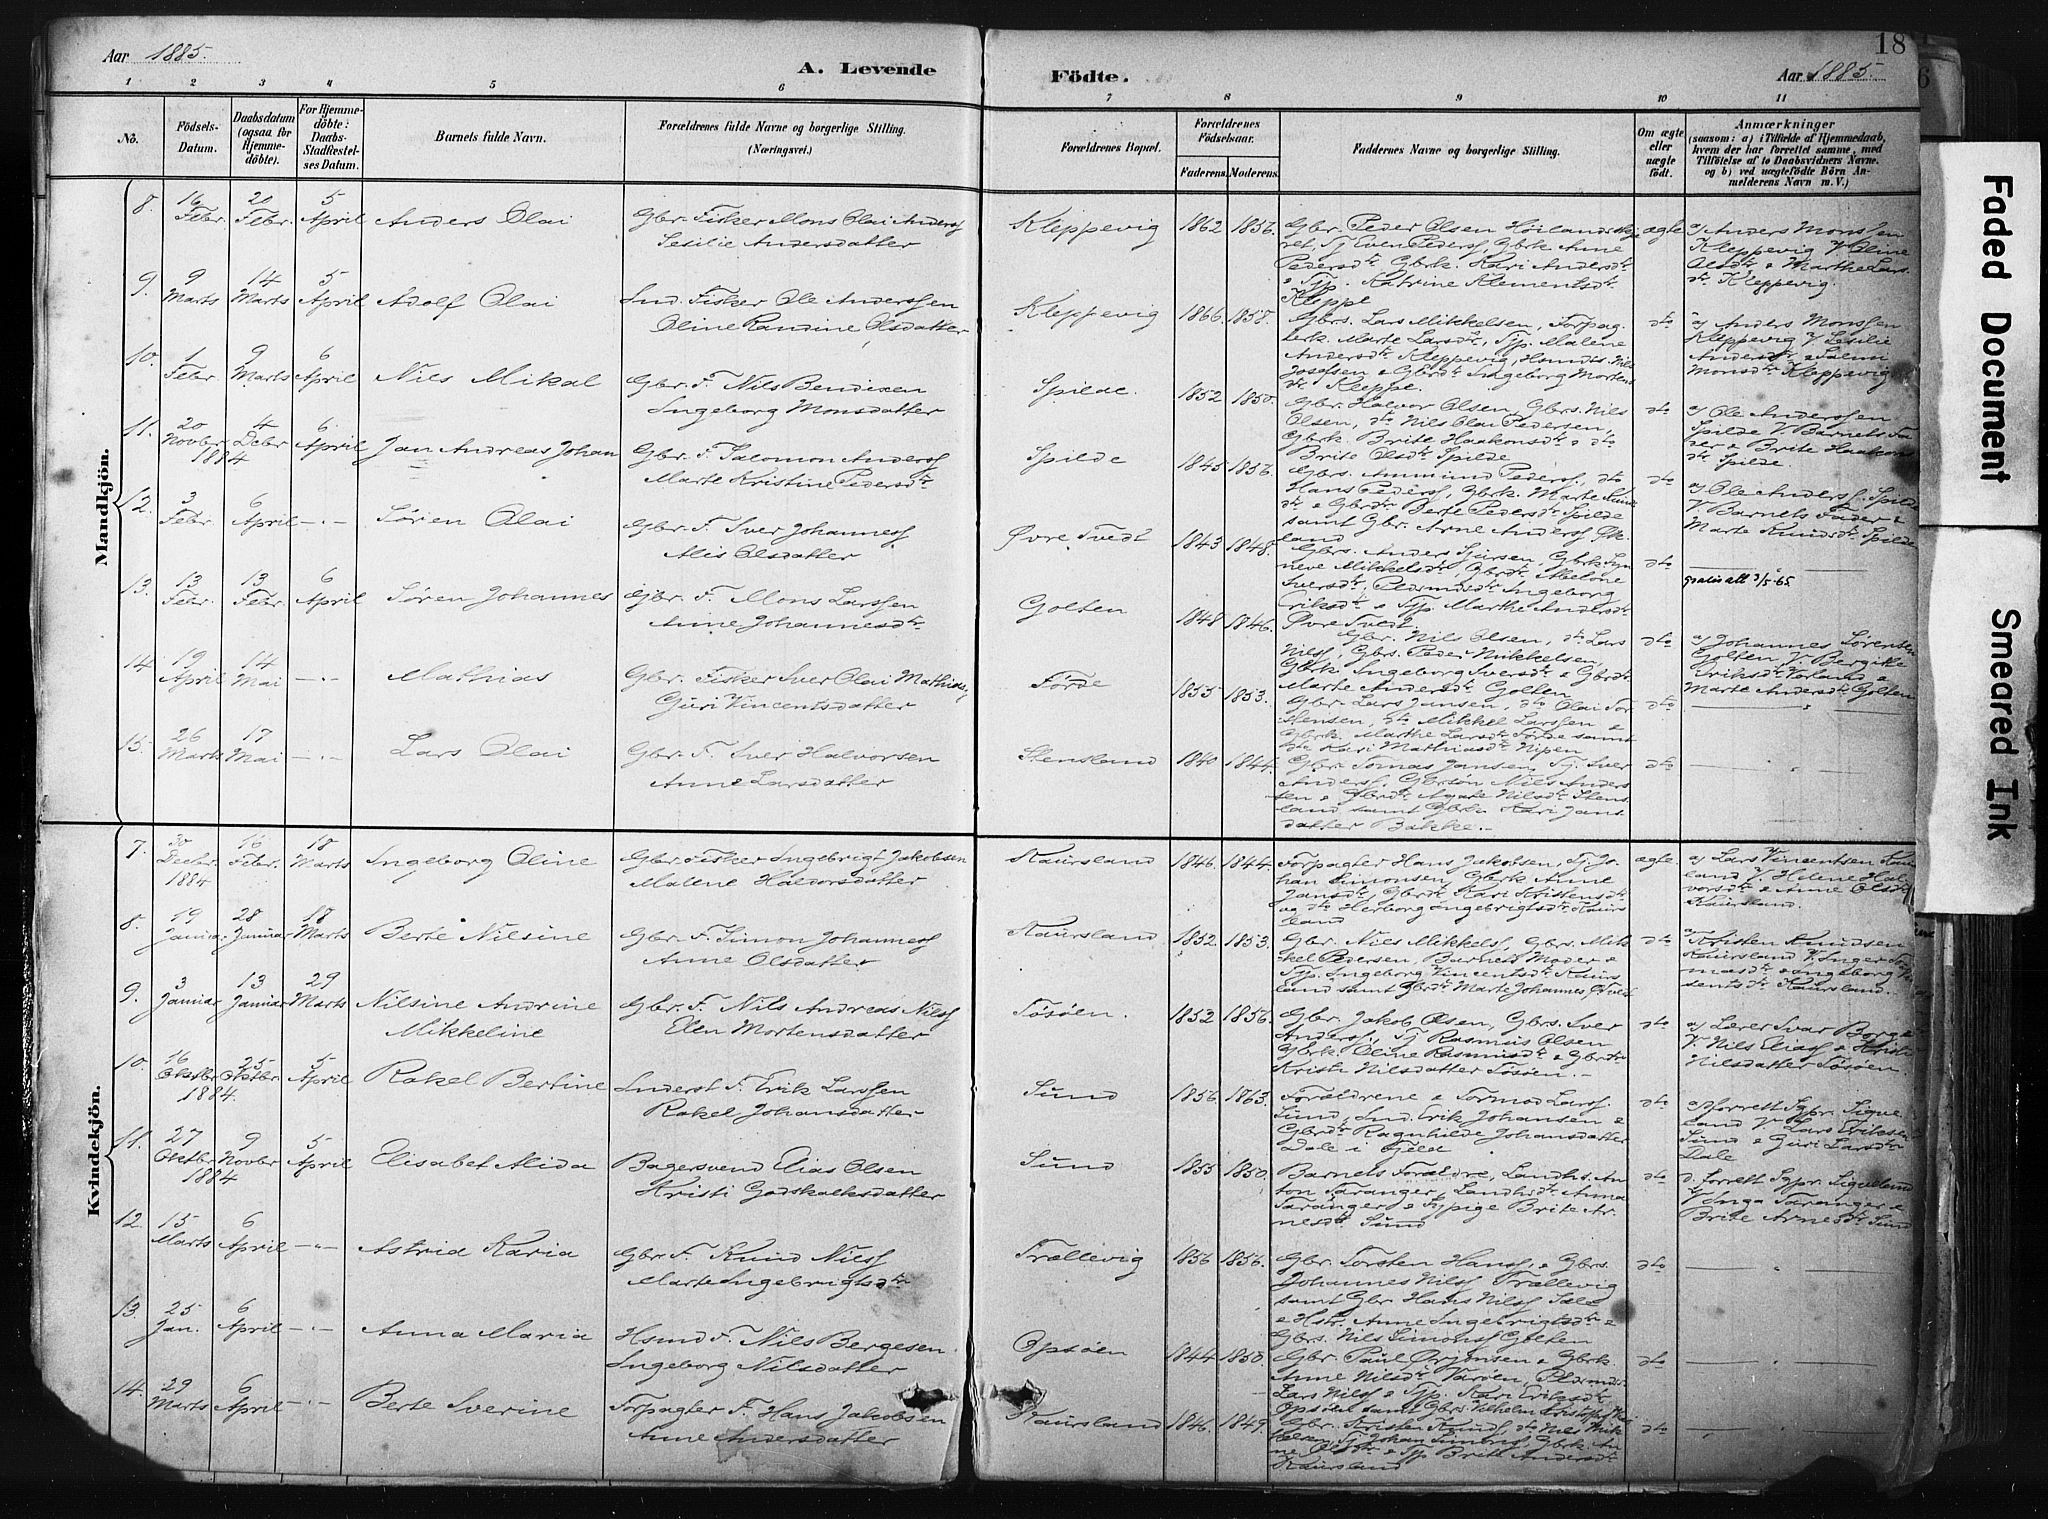 Aar 1885.
A. Levende
Födte.
Aar 1885.
18
6
1 2 3 4 5 6 7 8 9 10 11
No.
Födsels-Datum.
Daabsdatum (ogsaa for Hjemmedöbte).
For Hjemmedöbte: Daabs-Stadfæstelses Datum.
Barnets fulde Navn.
Forældrenes fulde Navne og borgerlige Stilling.
(Næringsvei.)
Forældrenes Bopæl.
Forældrenes Födselsaar.
Faderens. Moderens.
Faddernes Navne og borgerlige Stilling.
Om ægte eller uægte födt.
Anmærkninger
(saasom: a) i Tilfælde af Hjemmedaab, hvem der har forrettet samme, med Tilföielse af to Daabsvidners Navne. og b) ved uægtefödte Börn Anmelderens Navn m. V.)
Mandkjön.
8. 16 Febr. 20 Febr. 5 April Anders Olai
Gbr. Fisker Mons Olai Anderss
Sesilie Andersdatter
Kleppevig 1862 1856.
Gbr. Peder Olsen
ægte
a) Anders Monssen
Kleppevig V Oline
Olsdtr & Marthe Lars-
dtr Kleppevig.
9. 9 Marts 14 Marts 5 April Adolf Olai
Ind. Fisker Ole Anderssen
Oline Randine Olsdatter
Kleppevig 1866 1858.
Gbrs. Lars Mikkelsen, Forpag.
dto
a) Anders Monssen
Kleppevig V Sesilie
Andersdtr & Salmi
Monsdtr Kleppevig
10. 1 Febr. 9 Marts 6 April Nils Mikal
Gbr. F. Nils Bendixen
Ingeborg Monsdatter
Spilde. 1852 1850.
Gbr. Halvor Olsen, Gbrs. Nils
Olsen, dto Nils Olai Pedersen,
Gbrk. Brite Haakonsdtr & dto
Brite Olsdtr Spilde
dto
a) Ole Anderssen
Spilde V. Barnets Fa-
der & Brite Haakons
dtr Spilde.
11. 20 Novbr 1884 4 Debr 6 April Jan Andreas Johan
Gbr. F. Salomon Anderss
Marte Kristine Pedersdtr
Spilde 1845 1856.
Gbrs. Amund Peders, dto
Hans Peders, Gbrk. Marte Knuds
dtr & Gbrdtr Berte Pedersdtr Spilde
samt Gbr. Arne Anderss
dto
a) Ole Anderss. Spilde
V. Barnets Fader &
Marte Knudsdtr Spilde
12. 3 Febr. 6 April -"- Søren Olai
Gbr. F. Iver Johanness
Alis Olsdatter
Øvre Tvedt 1843 1848.
Gbrs. Anders Sjursen, Gbrk Syn-
neve Mikkelsdtr, Gbrdtr Abelone
Iversdtr, Pldrmdsdtr Ingeborg
Eriksdtr & Tjp Marthe Andersdtr
Øvre Tvedt.
dto
gratis att 3/5-65
13. 13 Febr. 13 Febr. 6 April Søren Johannes
Gbr. F. Mons Larssen
Anne Johannesdtr
Golten 1848 1846.
Gbr. Nils Olsen, dto Lars
Nilss, Gbrs. Peder Mikkelsen,
Gbrk. Ingeborg Iversdtr & Gbrdtr
Marte Andersdtr Golten
dto
a) Johannes Sørensen
Golten V Bergitte
Eriksdtr &
Marte Andersdtr Golten
14. 19 April 14 Mai -"- Mathias
Gbr. Fisker Iver Olai Mathiass
Guri Vincentsdatter
Førde 1855 1853.
Gbr. Lars Jansen, dto Olai Tor-
stensen, dto Mikkel Larssen &
Gbrk. Marthe Larsdtr Førde samt
dto Kari Mathiasdtr Nipen
dto
15. 26 Marts 17 Mai -"- Lars Olai
Gbr. F. Iver Halvorsen
Anne Larsdatter
Stensland 1840 1844.
Gbr. Tomas Jansen, Tj. Iver
Anderss, Gbrsøn Nils Anders-
sen & Gbrdtr Agate Nilsdtr Stens-
land samt Gbrk Kari Jans-
datter Bakke.-
dto
Kvindekjön.
7. 30 Decbr. 1884 16 Febr. 18 Marts Ingeborg Oline
Gbr. Fisker Ingebrigt Jakobsen
Malene Halvorsdatter
Kaursland 1846. 1844.
Forpagter Hans Jakobsen, Tj. Jo-
han Simonsen, Gbrk Anne
Jansdtr, Gbrdtr Kari Kristensdtr
og dto Herborg Ingebrigtsdtr Kaurs
land
ægte.
a) Lars Vincentsen Kaurs
land V. Helene Hal-
vorsdtr & Anne Olsdtr
Kaursland.
8. 19 Januar 28 Januar 18 Marts Berte Nilsine
Gbr. F. Simon Johanness
Anne Olsdatter
Kaursland 1852. 1853.
Gbr. Niels Mikkels, Gbrs. Mik-
kel Pedersen, Barnets Moder &
Tjp. Ingeborg Vincentsdtr Kaurs
land samt Gbrdtr Marte Johannes Ø Tvedt
dto
a) Kristen Knudsen
Kaursland V. Inger To-
masdtr & Ingeborg Vin
sentsdtr Kaursland.-
9. 3 Januar 13 Januar 29 Marts Nilsine Andrine
Mikkeline
Gbr. F. Nils Andreas Nilss
Elen Mortensdatter
Tøsøen. 1852 1856.
Gbr. Jakob Olsen, Gbrs. Iver
Anderss, Tj Rasmus Olsen
Gbrk. Oline Rasmusdtr & Gbrdtr
Kristi Nilsdatter Tøsøen.-
dto
a) Lærer Ivar Borge
V. Nils Eliass & Kristi
Nilsdatter Tøsøen.
10. 16 Oktbr 1884. 25 Oktbr 5 April Rakel Bertine
Inderst F. Erik Larssen
Rakel Johansdatter
Sund 1856. 1863.
Forældrene & Tormod Larss.
Sund, Ind. Erik Johansen &
Gbrdtr Ragnhilde Johansdatter
Dale i Fjeld
dto
a) forrett Sgpr. Sigve
land V Lars Eriksen
Sund & Guri Larsdtr
Dale
11. 27 Oktbr 1884 9 Novbr 5 April Elisabet Alida
Bagersvend Elias Olsen
Kristi Godskalksdatter
Sund 1855 1850.
Barnets Forældre, Landh. An-
ton Taranger, Landhsdtr Anna
Taranger & Tjpige Brite Ar-
nesdtr Sund
dto
a. forrett Sgpr. Sigveland
V Inga Taranger &
Brite Arnesdtr Sund
12. 15 Marts 6 April -"- Astrid Karia
Gbr. F. Knud Nilss
Marte Ingebrigtsdtr
Trællevig 1856 1856.
Gbr. Torsten Hanss, & Gbrs.
Johannes Nilss Trællevig
samt Gbr Hans Nilss Tæle
& Hstr. Anne Ingebrigtsdtr &
Gbrs. Nils Simonss Golten
dto
13. 25 Jan. 6 April -"- Anna Maria
Hsmd F. Nils Bergesen
Ingeborg Nilsdatter
Opsøen 1844 1850.
Gbr. Paul Ørjansen & Gbrk.
Anne Nilsdtr Varøen,
Lars Nilss & Tjp. Kari Eriksdtr
Opsøen samt Gbrs. Vilhelm
dto
14. 29 Marts 6 April -"- Berte Iverine
Forpagter F. Hans Jakobsen
Anne Andersdatter
Kaursland 1846. 1849.
Gbr. Kristen Knuds, dto Nils Mik-
kelsen, Tj Johan Simons, Gbrk. An-
ne Olsdtr & Tjp Brite Andersdtr
Kaursland
dto
Faded Document
Smeared Ink